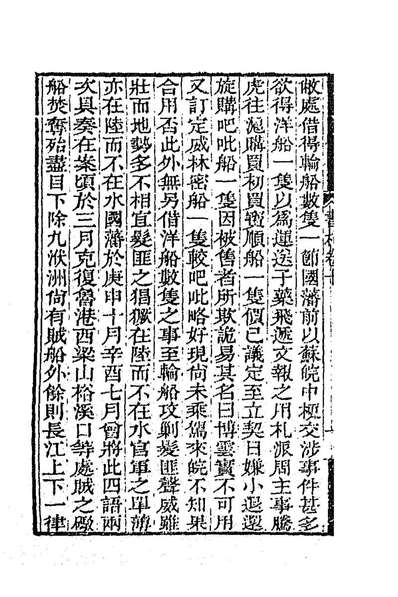 敝處借得輪船數隻一節國藩前以蘇皖中梗交涉事件甚多
欲得洋船一隻以為運送子藥飛遞文報之用札派周主事騰
虎往滬購買初買寶順船一隻價已議定至立契日嫌小退還
旋購吧吡船一隻因被售者所欺詭易其名曰博雲實不可用
又訂定威林密船一隻較吧吡略好現尚未乘駕來皖不知果
合用否此外無另借洋船數隻之事至輪船攻剿髮匪聲威雖
壯而地勢多不相宜髮匪之猖獗在陸而不在水官軍之單薄
亦在陸而不在水國藩於庚申十月辛酉七月曾將此四語兩
次具奏在案頃於三月克復魯港西梁山裕溪口等處賊之礮
船焚奪殆盡目下除九洑洲尚有賊船外餘則長江上下一律